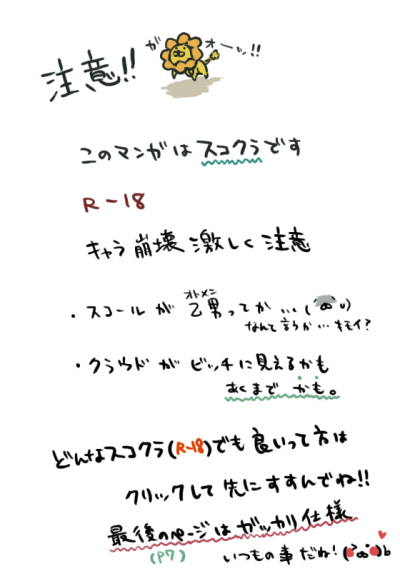 注意!!
がオーッ!!
このマンガはスコクラです
R-18
キャラ崩壊激しく注意
・スコールが乙男ってか…
オトメン
なんて言うか…キモイ?
・クラウドがビッチに見えるかも
あくまでかも。
どんなスコクラ(R-18)でも良いって方は
クリックして先にすすんでね!!
最後のページはガッカリ仕様
(P7)
いつもの事だね!